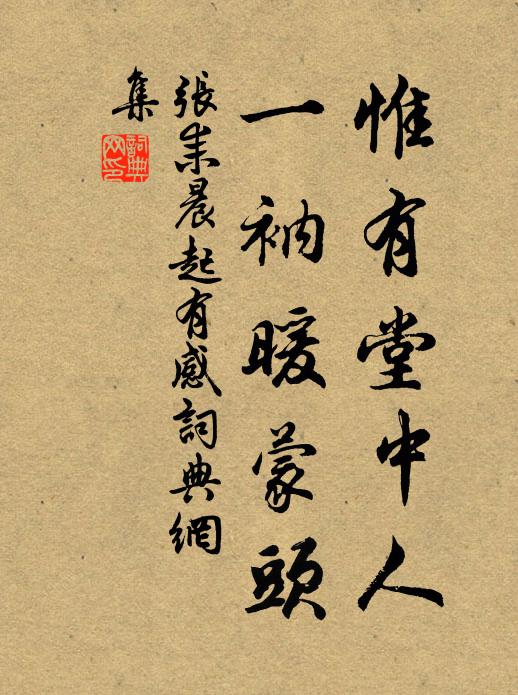 惟有堂中人
一衲暖蒙頭
張耒晨起有感詞典網
集
詞典
网印